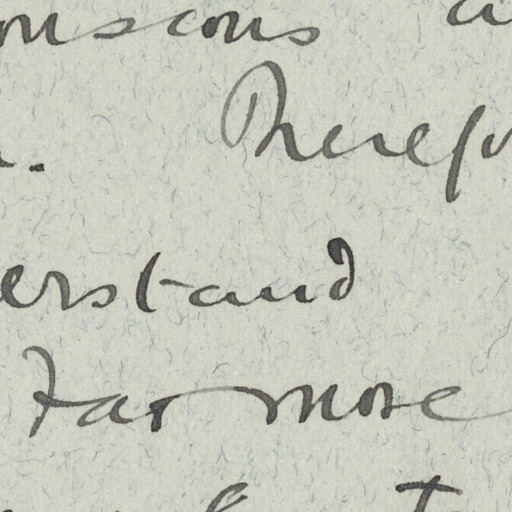 ouscous a
. Therefo
erstand
far more